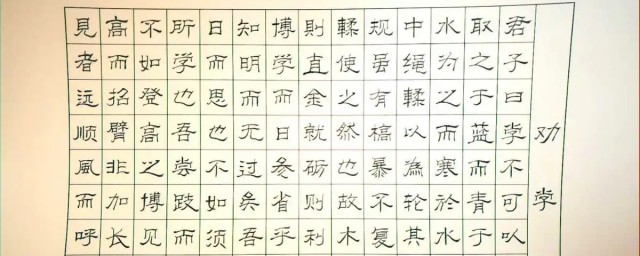 劝学
君子曰学不可以
取之于蓝而青于
水为之而寒於水
中绳輮以為轮其
规虽有槁暴不复
輮使之然也故木
則直金就砺则利
博学而日参省乎
知明而无过矣吾
日而思也不如须
所学也吾尝跂而
不如登高之博见
高而招臂非加长
見者远顺風而呼